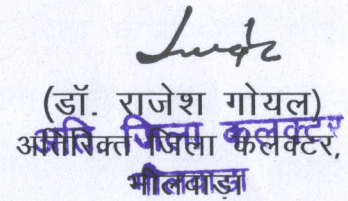 (डॉ. राजेश गोयल)
अति जिला कलक्टर
अतिरिक्त जिला कलक्टर,
भीलवाड़ा
भीलवाडा